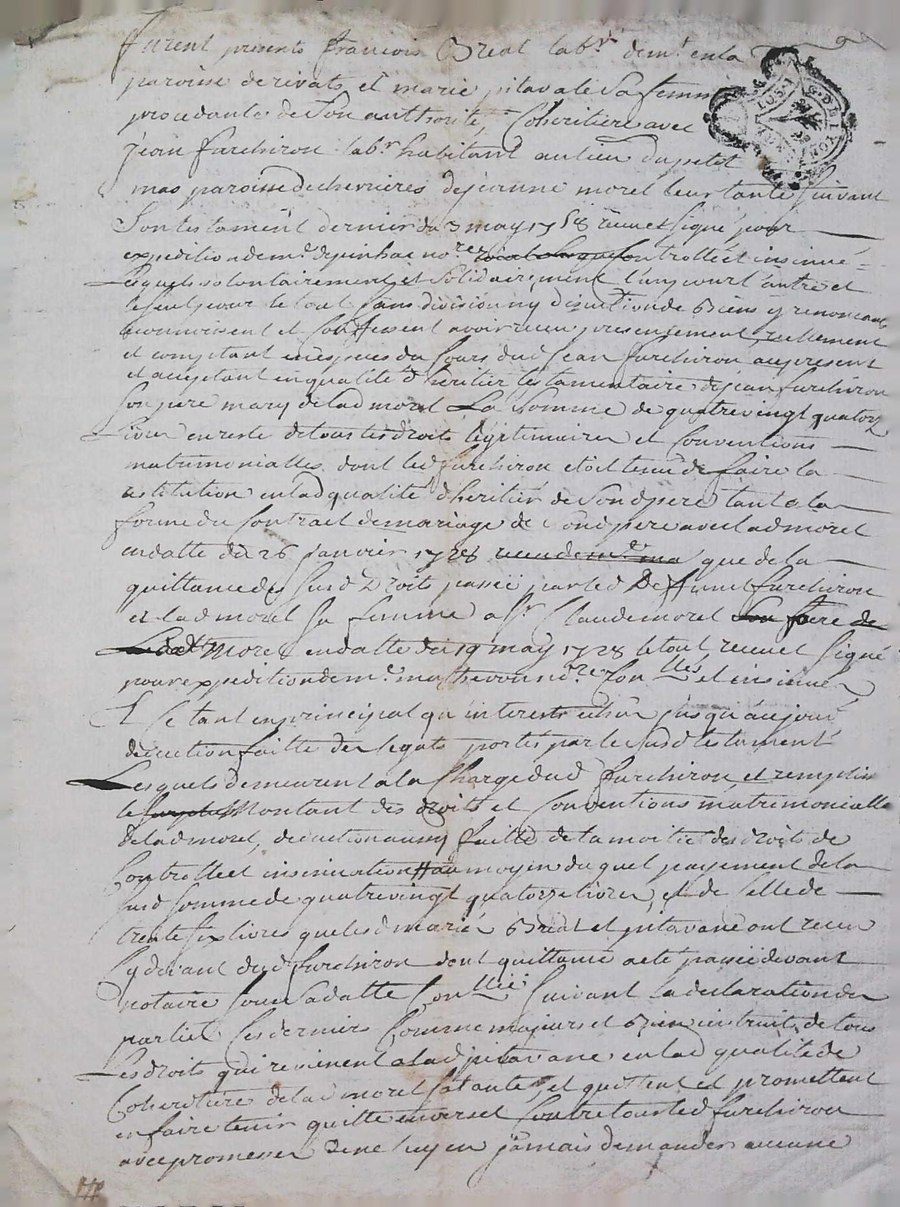 furent presents francois Breat labr demt en la
paroisse de rivats, et marie pitavale sa femme
procedante de son authorité Coheritiere avec
jean furchiron labr habitant au lieu du petit
mas paroisse de chevrieres de jeanne morel leur tante suivant
son testament dernier du 3 may 1758 receu et signé pour
expedition de me depinhac nore controllé et insinué
Lesquels volontairement et solidairement l'un pour l'autre et
le seul pour le tout sans division ny discution de biens y renoncant
reconnoissent et confessent avoir receu presentement, reellement
et comptant en especes du cours dud jean furchiron au present
et acceptant en qualité d'heritier testamentaire de jean furchiron
son pere mary de lad morel La somme de quatrevingt quatorze
Livres en reste de tous les droits legitimaires et conventions
matrimonialles dont led furchiron etoit tenu de faire la
restitution en lad qualité d'heritier de son d pere tant a la
forme du contract de mariage de son d pere avec lad morel
en datte du 26 janvier 1728 que de la
quittance des susd Droits passée par led Deffunt furchiron
et lad morel sa femme a sr Claude morel son frere de
morel en datte du 19 may 1728 le tout receu et signé
pour expedition de me mathevon nore Conlles et insinués
Et ce tant en principal qu'interests echus jusqu'aujour
deduction faitte des legats portés par le susd testament
Lesquels demeurent a la Charge dud furchiron, et remplis
le montant des droits et Conventions matrimonialles
de lad morel, deduction aussy faitte de la moitié des droits de
Controlle et insinuation au moyen du quel payement de la
susd somme de quatrevingt quatorze livres, et de celle de
trente six livres que lesd mariés Breat et pitavane ont receu
cy devant dud furchiron dont quittance a eté passée devant
notaire sous sa datte Conllée suivant la declaration des
parties ces derniers comme majeurs et bien instruits de tous
Les droits qui reviennent a lad pitavane en lad qualité de
Coheritiere de lad morel sa tante, et quittent et promettent
en faire tenir quitte envers et contre tous led furchiron
avec promesse de ne luy en jamais demander aucune